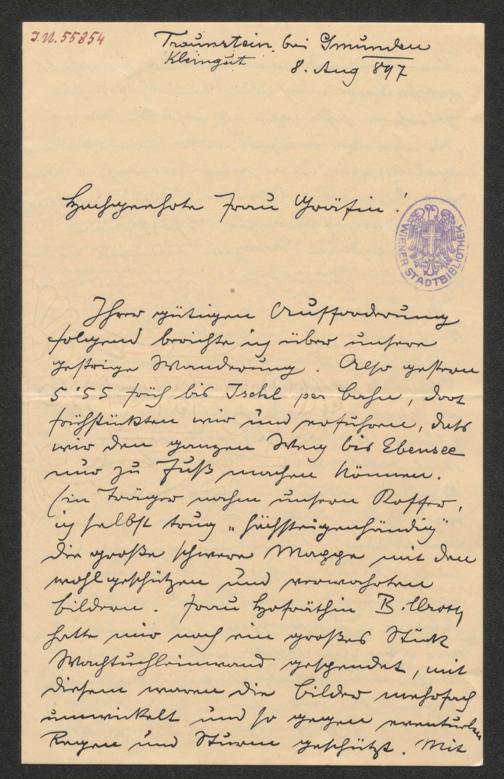 J.N. 55854
Traunstein bei Gmunden
Kleingut
8. Aug 897
Hochgeehrte Frau Gräfin!
WIENER STADTBIBLIOTHEK
Ihrer gütigen Aufforderung
folgend berichte ich über unsere
gestrige Wanderung. Also gestern
5'55 früh bis Ischl per Bahn, dort
frühstückten wir und erfuhren, dass
wir den ganzen Weg bis Ebensee
nur zu Fuß machen können.
Ein Träger nahm unsern Koffer,
ich selbst trug „höchsteigenhändig"
die große schwere Mappe mit den
wohlgeschützen und verwahrten
Bildern. Frau Hofräthin Billroth
hatte mir noch ein großes Stück
Wachstuchleinwand gespendet, mit
diesem waren die Bilder mehrfach
umwickelt und so gegen eventuellen
Regen und Sturm geschützt. Mit